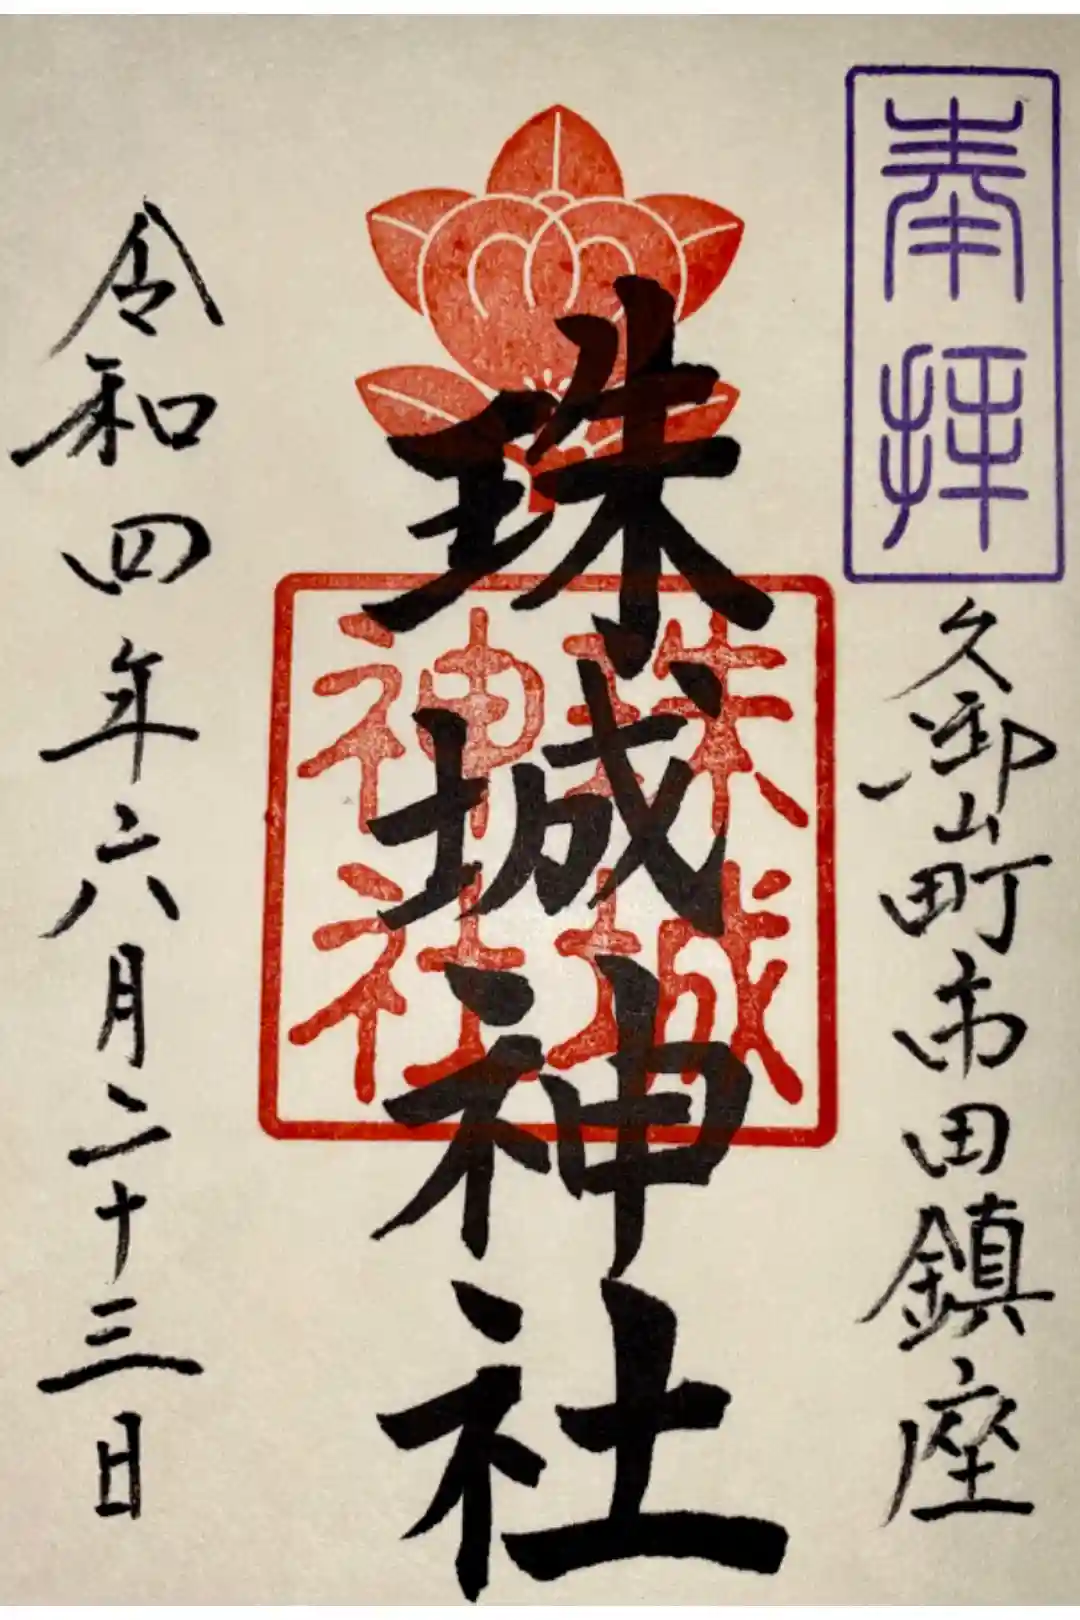 奉拝
久御山町市田鎮座
珠城神社
珠城
神社
令和四年六月二十三日